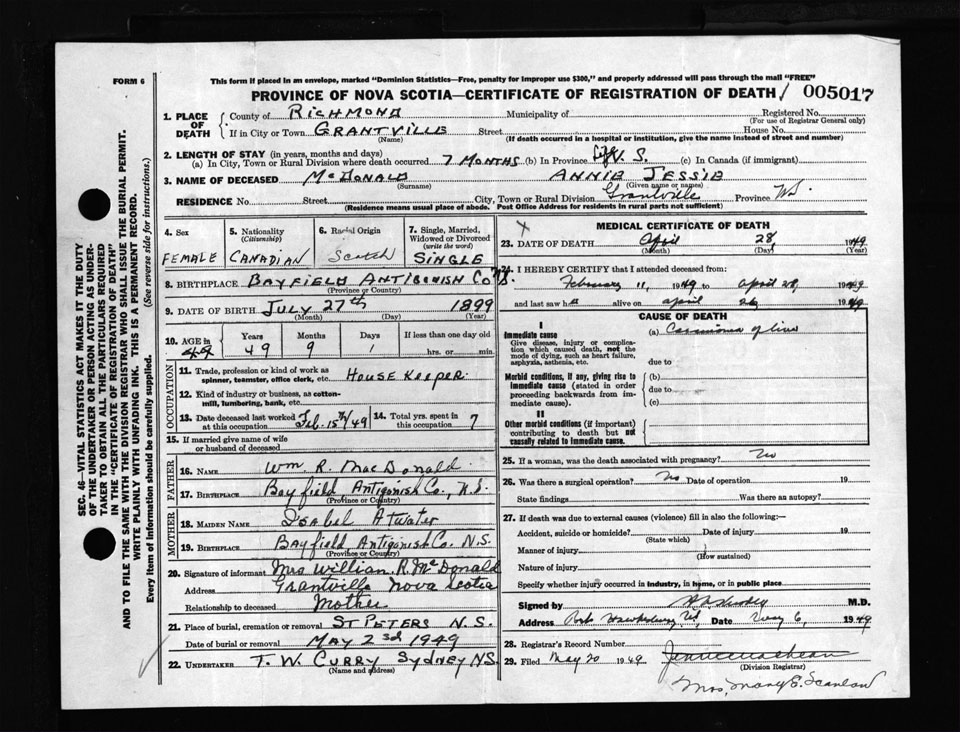 FORM 6
This form if placed in an envelope, marked "Dominion Statistics—Free, penalty for improper use $300," and properly addressed will pass through the mail "FREE"
PROVINCE OF NOVA SCOTIA—CERTIFICATE OF REGISTRATION OF DEATH/ 005017
1. PLACE OF DEATH { County of RICHMOND Municipality of Registered No.
(For use of Registrar General only)
If in City or Town GRANTVILLE Street House No.
(Name) (If death occurred in a hospital or institution, give the name instead of street and number)
2. LENGTH OF STAY (in years, months and days)
(a) In City, Town or Rural Division where death occurred 7 MONTHS (b) In Province Life N. S. (c) In Canada (if immigrant)
3. NAME OF DECEASED McDONALD ANNIE JESSIE
(Surname) (Given name or names)
RESIDENCE No. Street City, Town or Rural Division Grantville Province N.S.
(Residence means usual place of abode. Post Office Address for residents in rural parts not sufficient)
4. Sex
FEMALE
5. Nationality
(Citizenship)
CANADIAN
6. Racial Origin
Scotch
7. Single, Married, Widowed or Divorced
(write the word)
SINGLE
8. BIRTHPLACE BAYFIELD ANTIGONISH Co N.S.
(Province or Country)
9. DATE OF BIRTH JULY 27th 1899
(Month) (Day) (Year)
10. AGE in Years Months Days If less than one day old
49 49 9 1 hrs. or min.
OCCUPATION
11. Trade, profession or kind of work as spinner, teamster, office clerk, etc. HOUSE KEEPER.
12. Kind of industry or business, as cotton-mill, lumbering, bank, etc.
13. Date deceased last worked at this occupation Feb. 15th/49 14. Total yrs. spent in this occupation 7
15. If married give name of wife or husband of deceased
FATHER
16. NAME Wm. R. MacDonald.
17. BIRTHPLACE Bayfield Antigonish Co. N.S.
(Province or Country)
MOTHER
18. MAIDEN NAME Isabel Atwater
19. BIRTHPLACE Bayfield Antigonish Co. N.S.
(Province or Country)
20. Signature of informant Mrs William R. McDonald
Address Grantville Nova Scotia
Relationship to deceased Mother
21. Place of burial, cremation or removal ST PETERS N.S.
Date of burial or removal MAY 2 3rd 1949
22. UNDERTAKER T. W. CURRY SYDNEY N.S.
(Name and address)
MEDICAL CERTIFICATE OF DEATH
23. DATE OF DEATH April 28, 1949
(Month) (Day) (Year)
24. I HEREBY CERTIFY that I attended deceased from:
February 11, 1949 to april 28, 1949
and last saw h alive on april 26, 1949
CAUSE OF DEATH
I
Immediate cause
Give disease, injury or complication which caused death, not the mode of dying, such as heart failure, asphyxia, asthenia, etc.
(a) Carcinoma of liver
due to
Morbid conditions, if any, giving rise to immediate cause (stated in order proceeding backwards from immediate cause).
(b)
due to
(c)
II
Other morbid conditions (if important) contributing to death but not causally related to immediate cause.
25. If a woman, was the death associated with pregnancy? No
26. Was there a surgical operation? No Date of operation 19
State findings Was there an autopsy?
27. If death was due to external causes (violence) fill in also the following:—
Accident, suicide or homicide? Date of injury 19
(State which)
Manner of injury
(How sustained)
Nature of injury
Specify whether injury occurred in industry, in home, or in public place
Signed by M.D.
Address Port Hawkesbury, N.S. Date May 6, 1949
28. Registrar's Record Number
29. Filed May 20 1949
(Division Registrar)
Mrs. Mary E. Scanlan
SEC. 46—VITAL STATISTICS ACT MAKES IT THE DUTY
OF THE UNDERTAKER OR PERSON ACTING AS UNDER-
TAKER TO OBTAIN ALL THE PARTICULARS REQUIRED
IN THE "CERTIFICATE OF REGISTRATION OF DEATH"
AND TO FILE THE SAME WITH THE DIVISION REGISTRAR WHO SHALL ISSUE THE BURIAL PERMIT.
WRITE PLAINLY WITH UNFADING INK. THIS IS A PERMANENT RECORD.
Every item of Information should be carefully supplied. (See reverse side for instructions.)